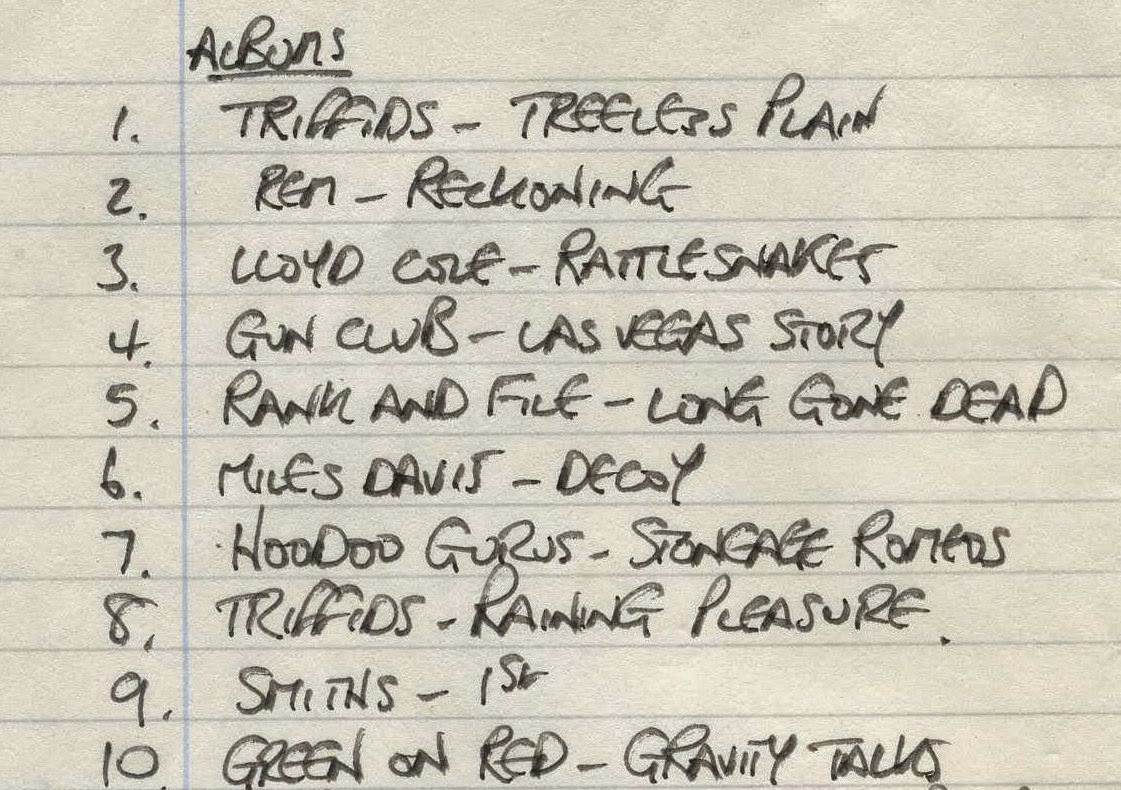 ALBUMS
1. TRIFFIDS - TREELESS PLAIN
2. REM - RECKONING
3. LLOYD COLE - RATTLESNAKES
4. GUN CLUB - LAS VEGAS STORY
5. RANK AND FILE - LONG GONE DEAD
6. MILES DAVIS - DECOY
7. HOODOO GURUS - STONEAGE ROMEOS
8. TRIFFIDS - RAINING PLEASURE.
9. SMITHS - 1st
10. GREEN ON RED - GRAVITY TALKS